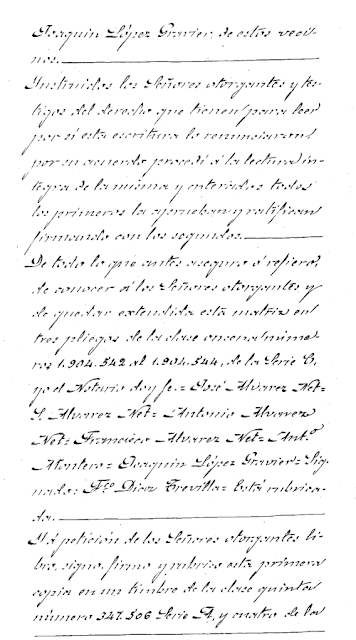 Joaquin López Gravier, de estos veci-
nos.
Instruidos los Señores otorgantes y tes-
tigos del derecho que tienen para leer
por sí esta escritura lo renunciaron,
por su acuerdo procedí á la lectura ín-
tegra de la misma y enterados todos
los primeros la aprueban y ratifican
firmando con los segundos.
De todo lo que antes aseguro ó refiero,
de conocer á los Señores otorgantes y
de quedar extendida esta matriz en
tres pliegos de la clase oncena núme-
ros 1.904.542 al 1.904.544, de la Serie C,
yo el Notario doy fe. = José Alvarez Net =
S. Alvarez Net = Antonio Alvarez
Net = Francisco Alvarez Net = Ant.º
Montero = Joaquin López Gravier = Sig-
nado: F.co Diaz Trevilla = Está rubrica-
do.
Y á petición de los Señores otorgantes li-
bro, signo, firmo y rubrico esta primera
copia en un timbre de la clase quinta
número 347.506 Serie A, y cuatro de la